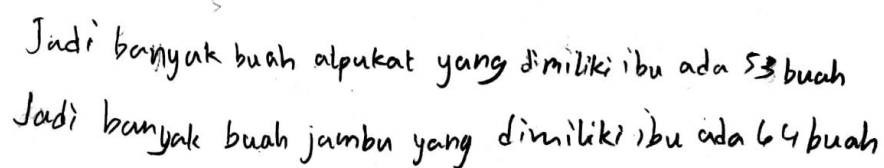 Jadi banyak buah alpukat yang dimiliki ibu ada 53 buah
Jadi banyak buah jambu yang dimiliki ibu ada 64 buah